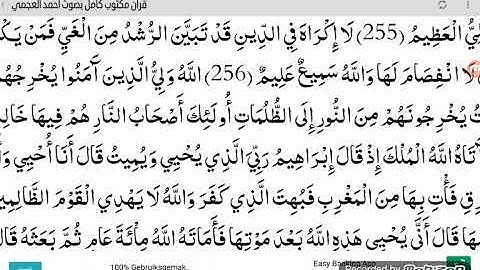 قرآن مكتوب كامل بصوت أحمد العجمي
الْعَظِيمُ (255) لَا إِكْرَاهَ فِي الدِّينِ قَدْ تَبَيَّنَ الرُّشْدُ مِنَ الْغَيِّ فَمَنْ
لَا انْفِصَامَ لَهَا وَاللَّهُ سَمِيعٌ عَلِيمٌ (256) اللَّهُ وَلِيُّ الَّذِينَ آمَنُوا يُخْرِجُهُمْ
يُخْرِجُونَهُمْ مِنَ النُّورِ إِلَى الظُّلُمَاتِ أُولَئِكَ أَصْحَابُ النَّارِ هُمْ فِيهَا
اللَّهُ الْمُلْكَ إِذْ قَالَ إِبْرَاهِيمُ رَبِّيَ الَّذِي يُحْيِي وَيُمِيتُ قَالَ أَنَا أُحْيِي
فَأْتِ بِهَا مِنَ الْمَغْرِبِ فَبُهِتَ الَّذِي كَفَرَ وَاللَّهُ لَا يَهْدِي الْقَوْمَ الظَّالِمِينَ
قَالَ أَنَّى يُحْيِي هَذِهِ اللَّهُ بَعْدَ مَوْتِهَا فَأَمَاتَهُ اللَّهُ مِائَةَ عَامٍ ثُمَّ بَعَثَهُ قَالَ
100% Gebruiksgemak.
Easy Banking App